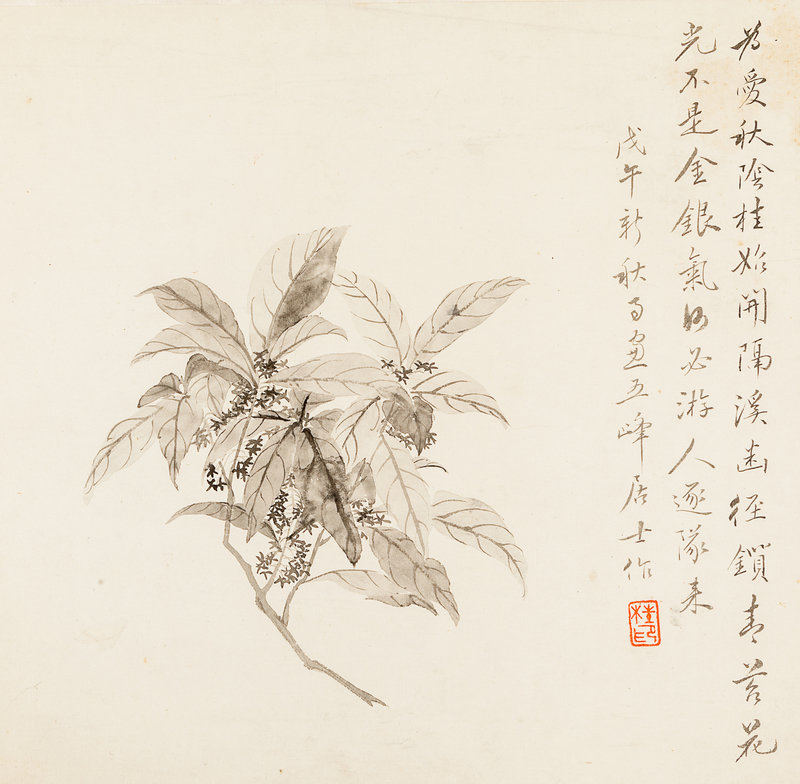 为愛秋陰桂始開隔溪幽徑鎖青苔花
光不是金銀氣何必游人逐隊来
戊午新秋畫五峰居士作
桂印